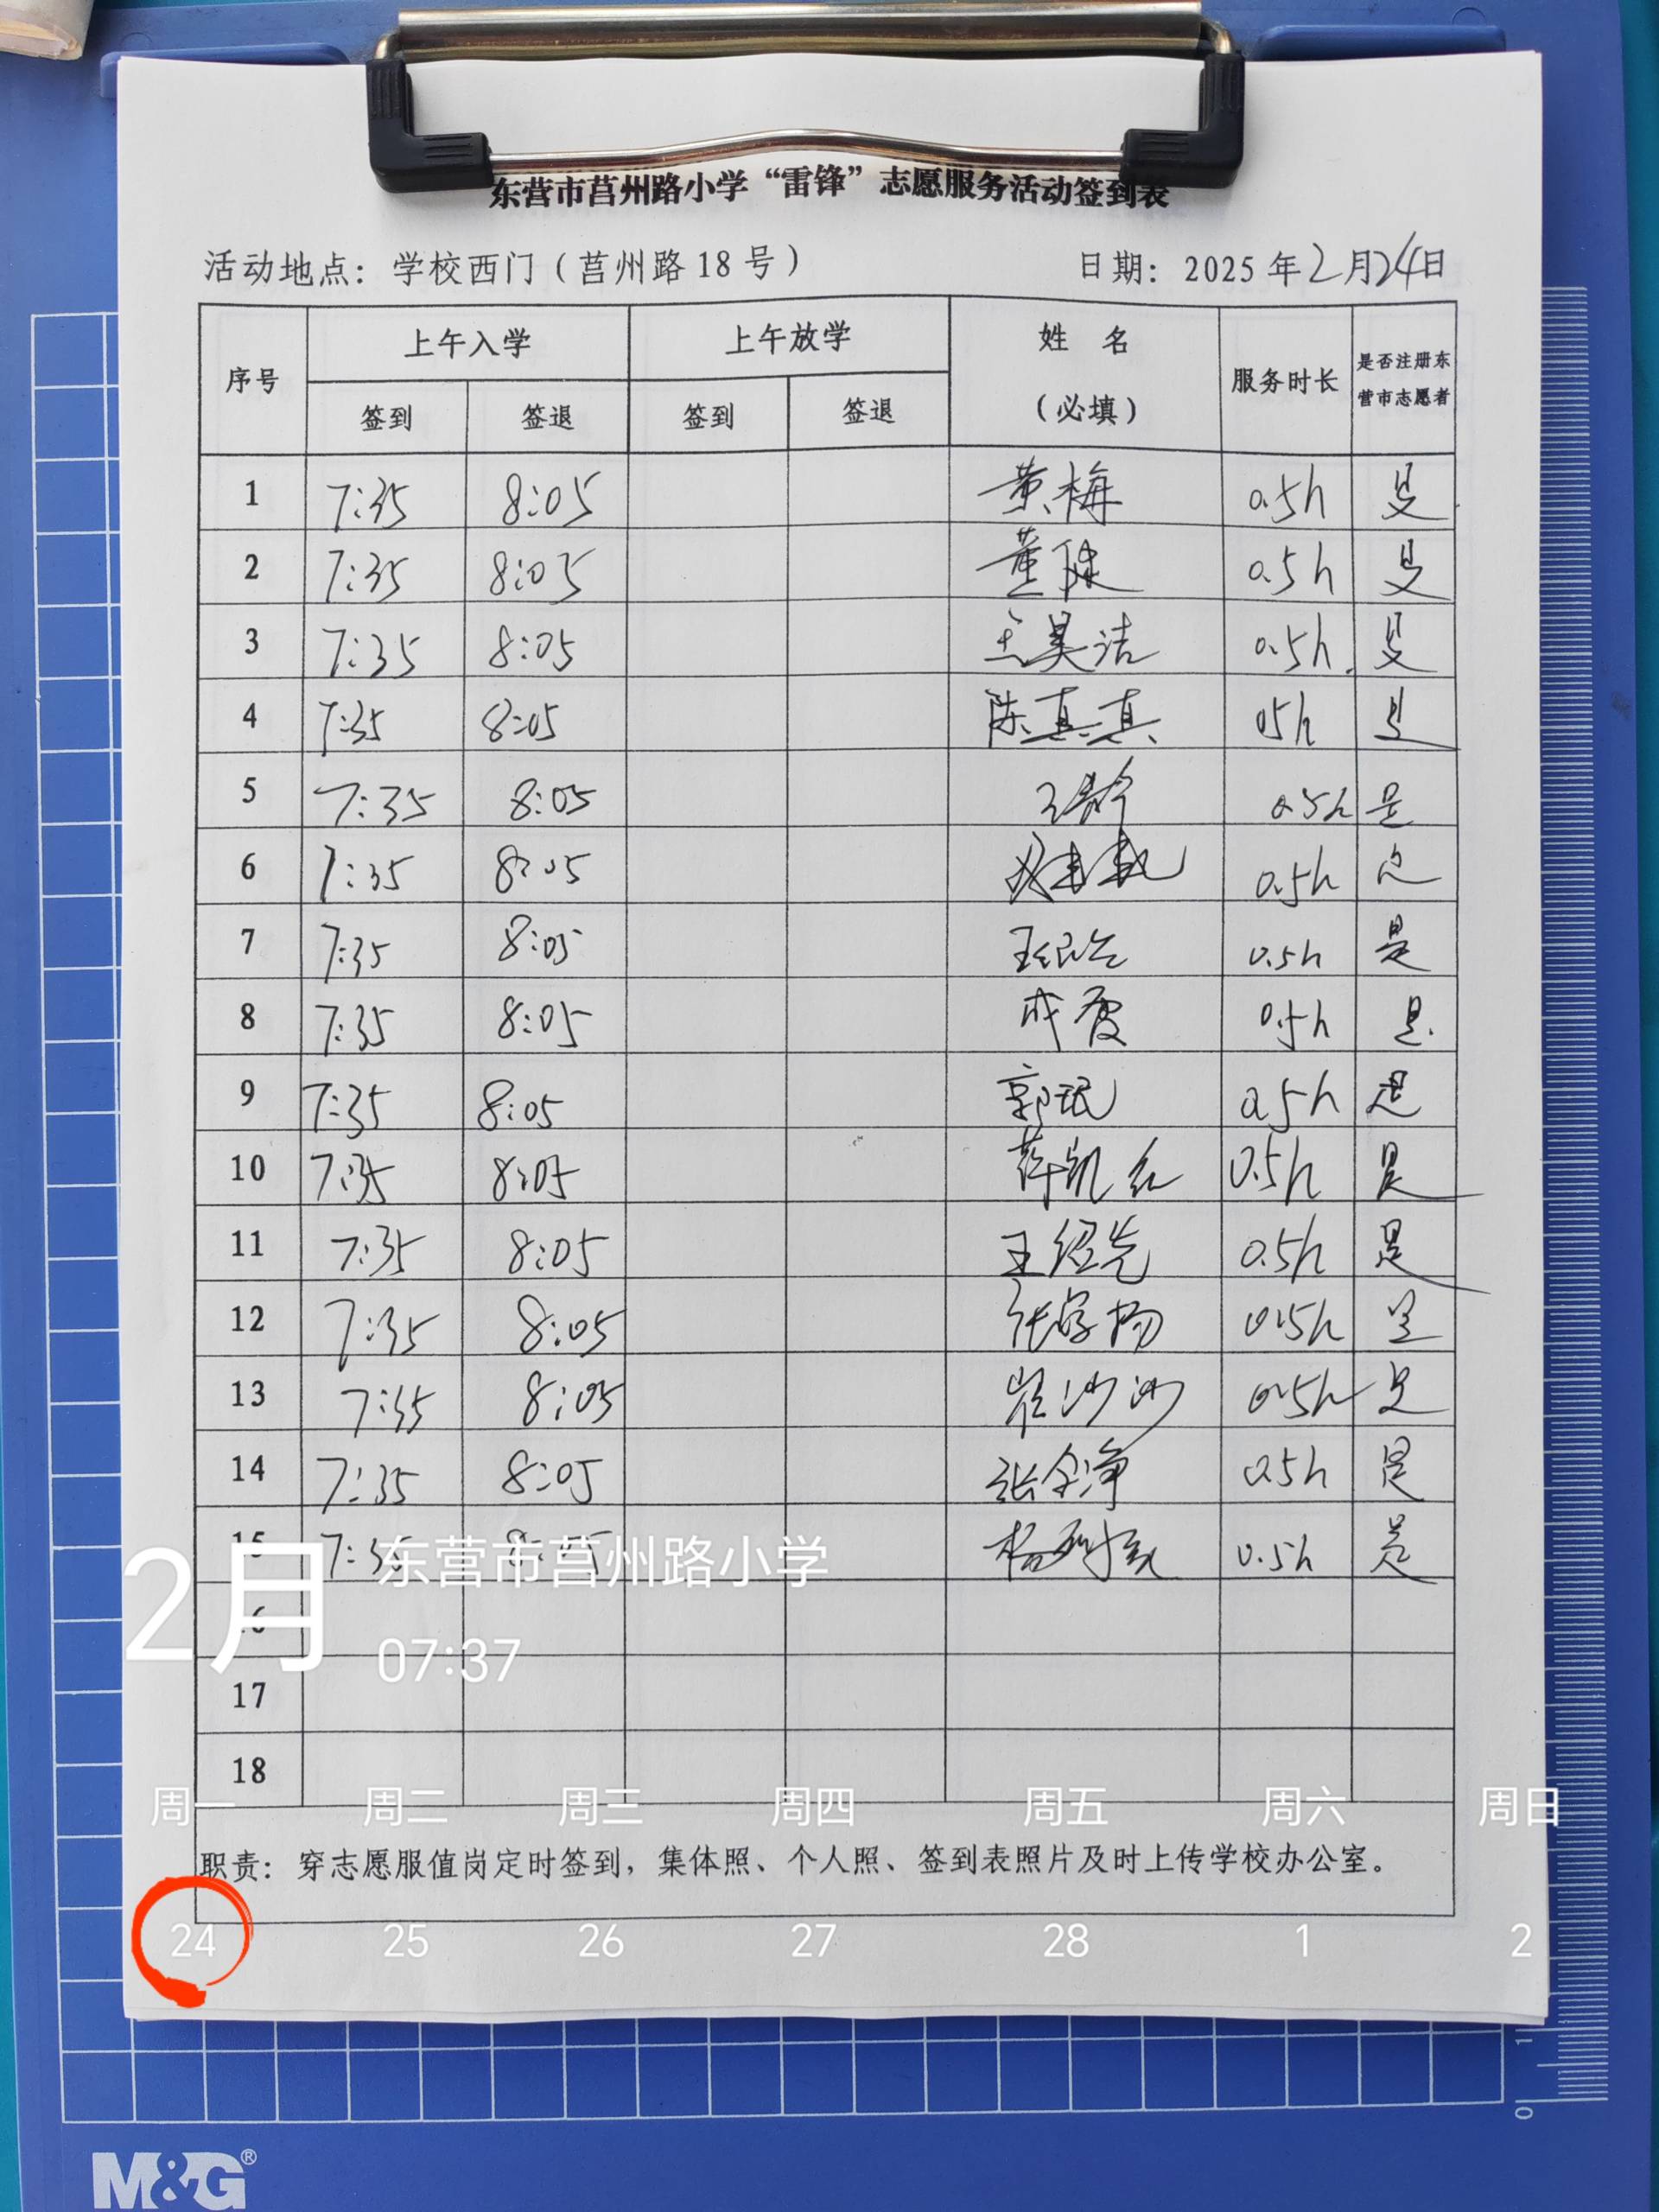 东营市莒州路小学“雷锋”志愿服务活动签到表
活动地点：学校西门（莒州路18号） 日期：2025年2月24日
序号 上午入学 上午放学 姓 名 （必填） 服务时长 是否注册东营市志愿者
签到 签退 签到 签退
1 7:35 8:05 黄梅 0.5h 是
2 7:35 8:05 董健 0.5h 是
3 7:35 8:05 王昊洁 0.5h 是
4 7:35 8:05 陈真真 0.5h 是
5 7:35 8:05 0.5h 是
6 7:35 8:05 0.5h 是
7 7:35 8:05 0.5h 是
8 7:35 8:05 0.5h 是
9 7:35 8:05 郭珉 0.5h 是
10 7:35 8:05 薛凯红 0.5h 是
11 7:35 8:05 王绍先 0.5h 是
12 7:35 8:05 0.5h 是
13 7:35 8:05 崔沙沙 0.5h 是
14 7:35 8:05 0.5h 是
15 7:35 8:05 0.5h 是
2月 东营市莒州路小学
16
07:37
17
18
周一 周二 周三 周四 周五 周六 周日
职责：穿志愿服值岗定时签到，集体照、个人照、签到表照片及时上传学校办公室。
24 25 26 27 28 1 2
0 1
M&G®